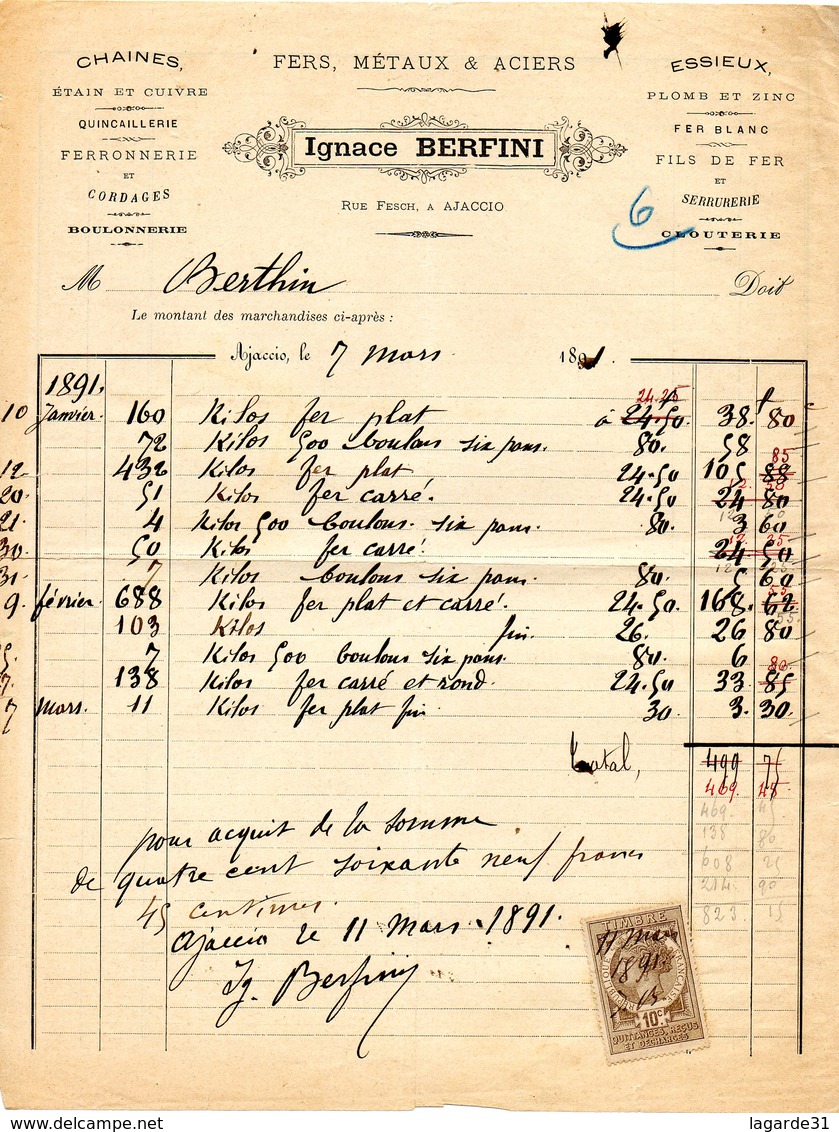 CHAINES,
ÉTAIN ET CUIVRE
QUINCAILLERIE
FERRONNERIE
ET
CORDAGES
BOULONNERIE
FERS, MÉTAUX & ACIERS
Ignace BERFINI
RUE FESCH, A AJACCIO
ESSIEUX,
PLOMB ET ZINC
FER BLANC
FILS DE FER
ET
SERRURERIE
CLOUTERIE
6
M Berthin Doit
Le montant des marchandises ci-après :
Ajaccio, le 7 mars 1891.
1891.
24.25
10 Janvier. 160 Kilos fer plat à 24.50. 38. 80
72 Kilos 500 boulons six pans. 80. 58
85
12 432 Kilos fer plat 24.50 105 88
12. 50
20. 51 Kilos fer carré. 24.50 24 80
21. 4 Kilos 500 boulons six pans. 80. 3 60
12. 25
30. 50 Kilos fer carré. 24 50
31. 7 Kilos boulons six pans. 80. 5 60
55
9. février. 688 Kilos fer plat et carré. 24.50. 168. 62
103 Kilos fin. 26. 26 80
7 Kilos 500 boulons six pans. 80. 6
80.
138 Kilos fer carré et rond. 24.50 33. 85
7 Mars. 11 Kilos fer plat fin 30. 3. 30.
Total, 499 75
469. 45
469. 45
138 80
608 25
214. 90
823. 15
pour acquit de la somme
de quatre cent soixante neuf francs
45 centimes.
Ajaccio le 11 Mars. 1891.
Ig. Berfini
TIMBRE
RÉPUBLIQUE FRANÇAISE
11 Mars
1891.
10c
QUITTANCES, REÇUS
ET DÉCHARGES
lagarde31